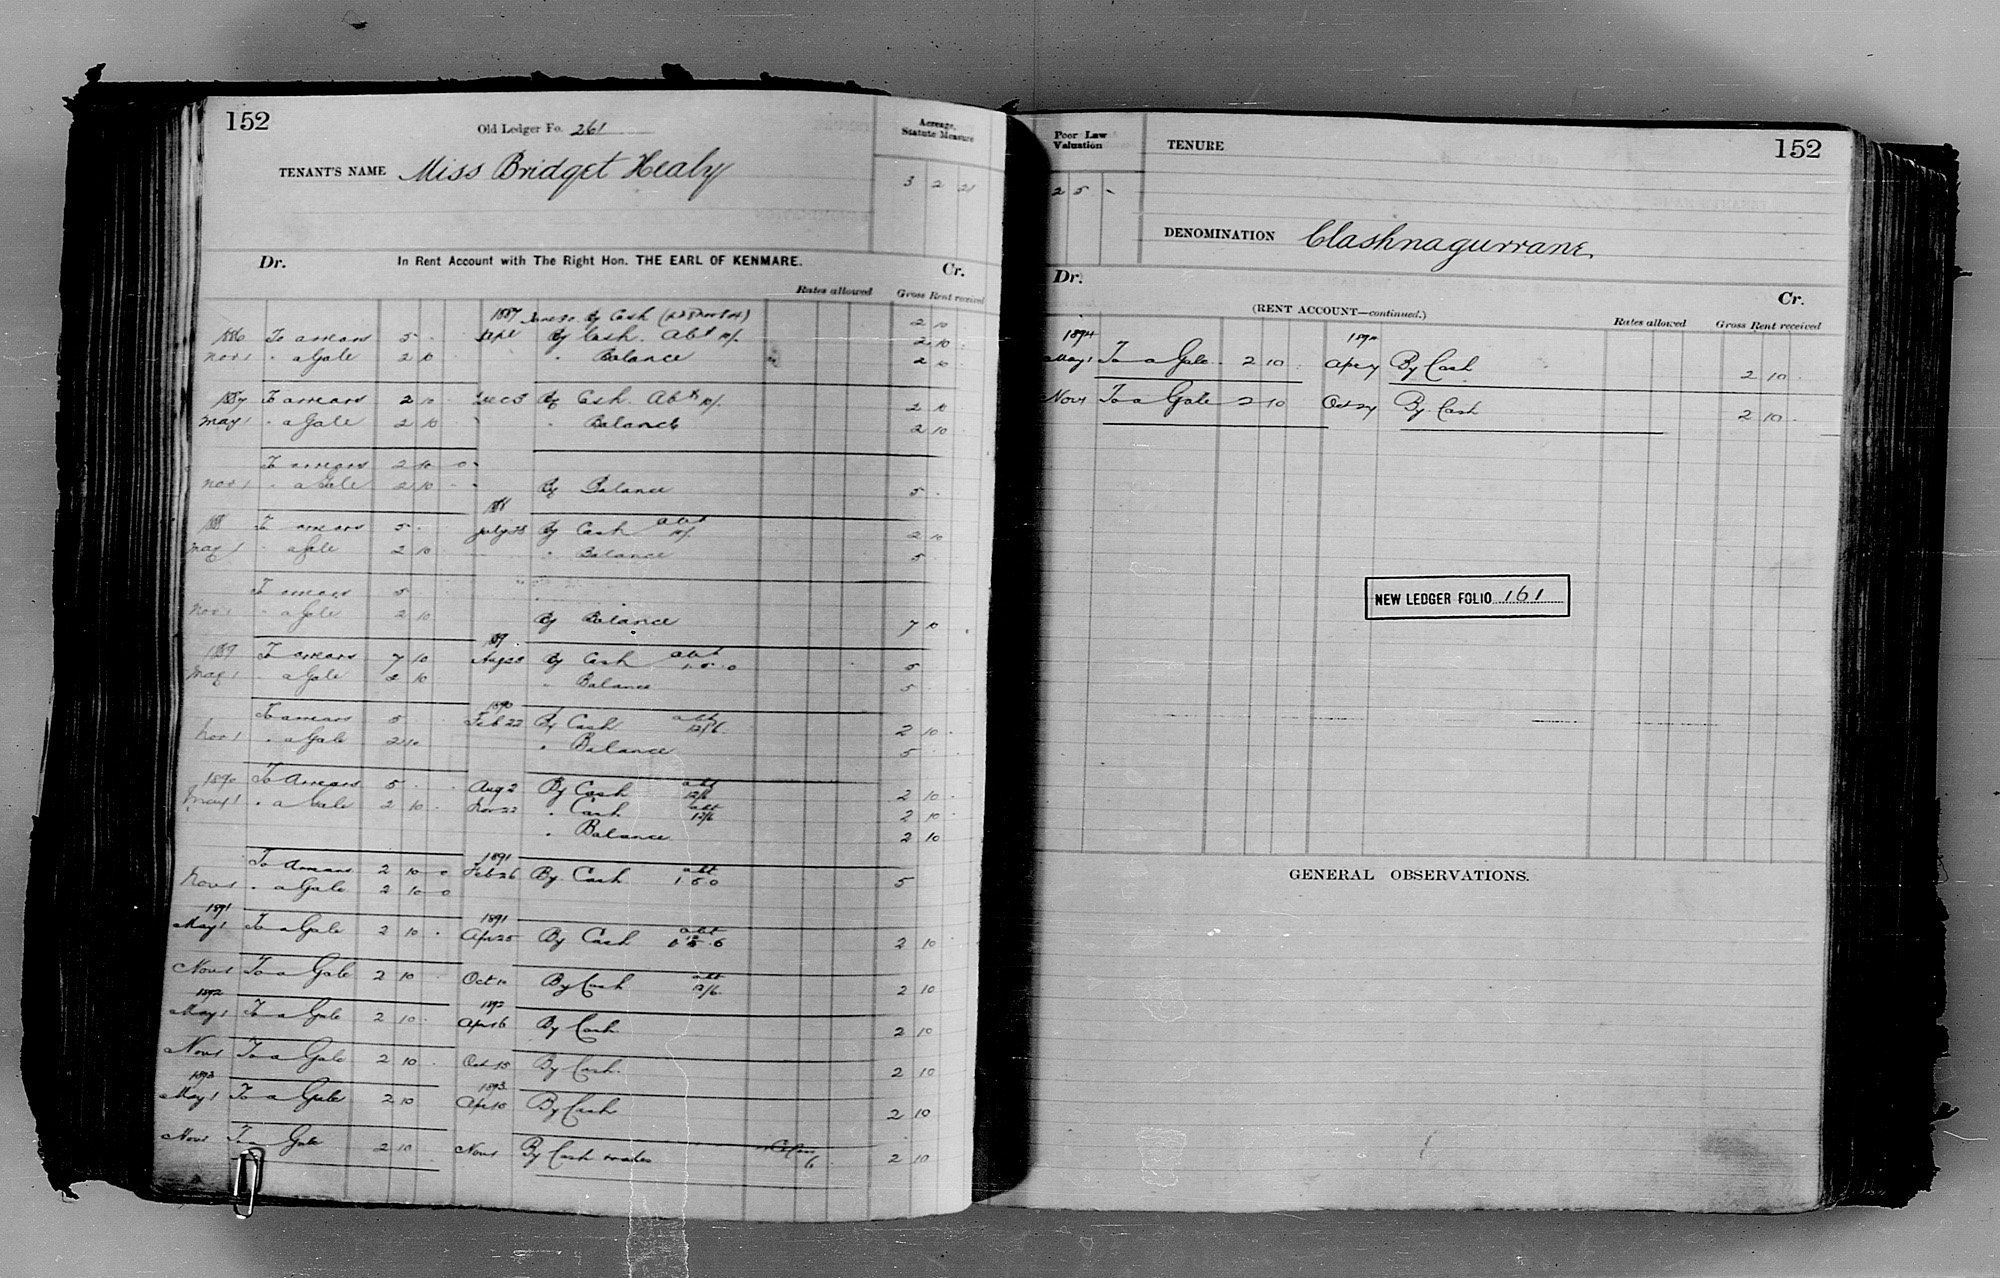 152
Old Ledger Fo. 261
Acreage, Statute Measure
TENANT'S NAME Miss Bridget Healy
3 2 21
Dr. In Rent Account with The Right Hon. THE EARL OF KENMARE. Cr.
Rates allowed Gross Rent received
1887 By Cash 2 10
1886 To arrears 5 - Sept By Cash. Abt 10/. 2 10
Nov 1 " a Gale 2 10 " Balance 2 10
1887 To arrears 2 10 Dec 5 By Cash. Abt 10/. 2 10
May 1 " a Gale 2 10 " Balance 2 10
To arrears 2 10 0
Nov 1 " a Gale 2 10 - By Balance 5 -
1888
1888 To arrears 5 - July 28 By Cash abt 10/. 2 10
May 1 " a Gale 2 10 " Balance 5 -
To arrears 5
Nov 1 " a Gale 2 10 By Balance 7 10
1889
1889 To arrears 7 10 Aug 23 By Cash abt 1.5.0 5
May 1 " a Gale 2 10 " Balance 5
1890
To arrears 5 Feb 22 By Cash abt 12/6 2 10
Nov 1 " a Gale 2 10 " Balance 5
1890 To Arrears 5 - Aug 2 By Cash abt 12/6 2 10
May 1 " a Gale 2 10 Nov 22 " Cash abt 12/6 2 10
" Balance 2 10
1891
To Arrears 2 10 0 Feb 26 By Cash abt 1 5 0 5
Nov 1 " a Gale 2 10 0
1891 1891
May 1 To a Gale 2 10 Apr 25 By Cash abt 2 10
Nov 1 To a Gale 2 10 Oct 10 By Cash abt 12/6 2 10
1892 1892
May 1 To a Gale 2 10 Apr 6 By Cash 2 10
Nov 1 To a Gale 2 10 Oct 15 By Cash 2 10
1893 1893
May 1 To a Gale 2 10 Apr 10 By Cash 2 10
Nov 1 To a Gale 2 10 Nov 1 By Cash 6 2 10
Poor Law Valuation
TENURE
152
2 5 -
DENOMINATION Clashnagurrane
Dr. Cr.
(RENT ACCOUNT—continued.)
Rates allowed Gross Rent received
1894 1894
May 1 To a Gale 2 10 Apr 7 By Cash 2 10
Nov 1 To a Gale 2 10 Oct 27 By Cash 2 10
NEW LEDGER FOLIO 161
GENERAL OBSERVATIONS.